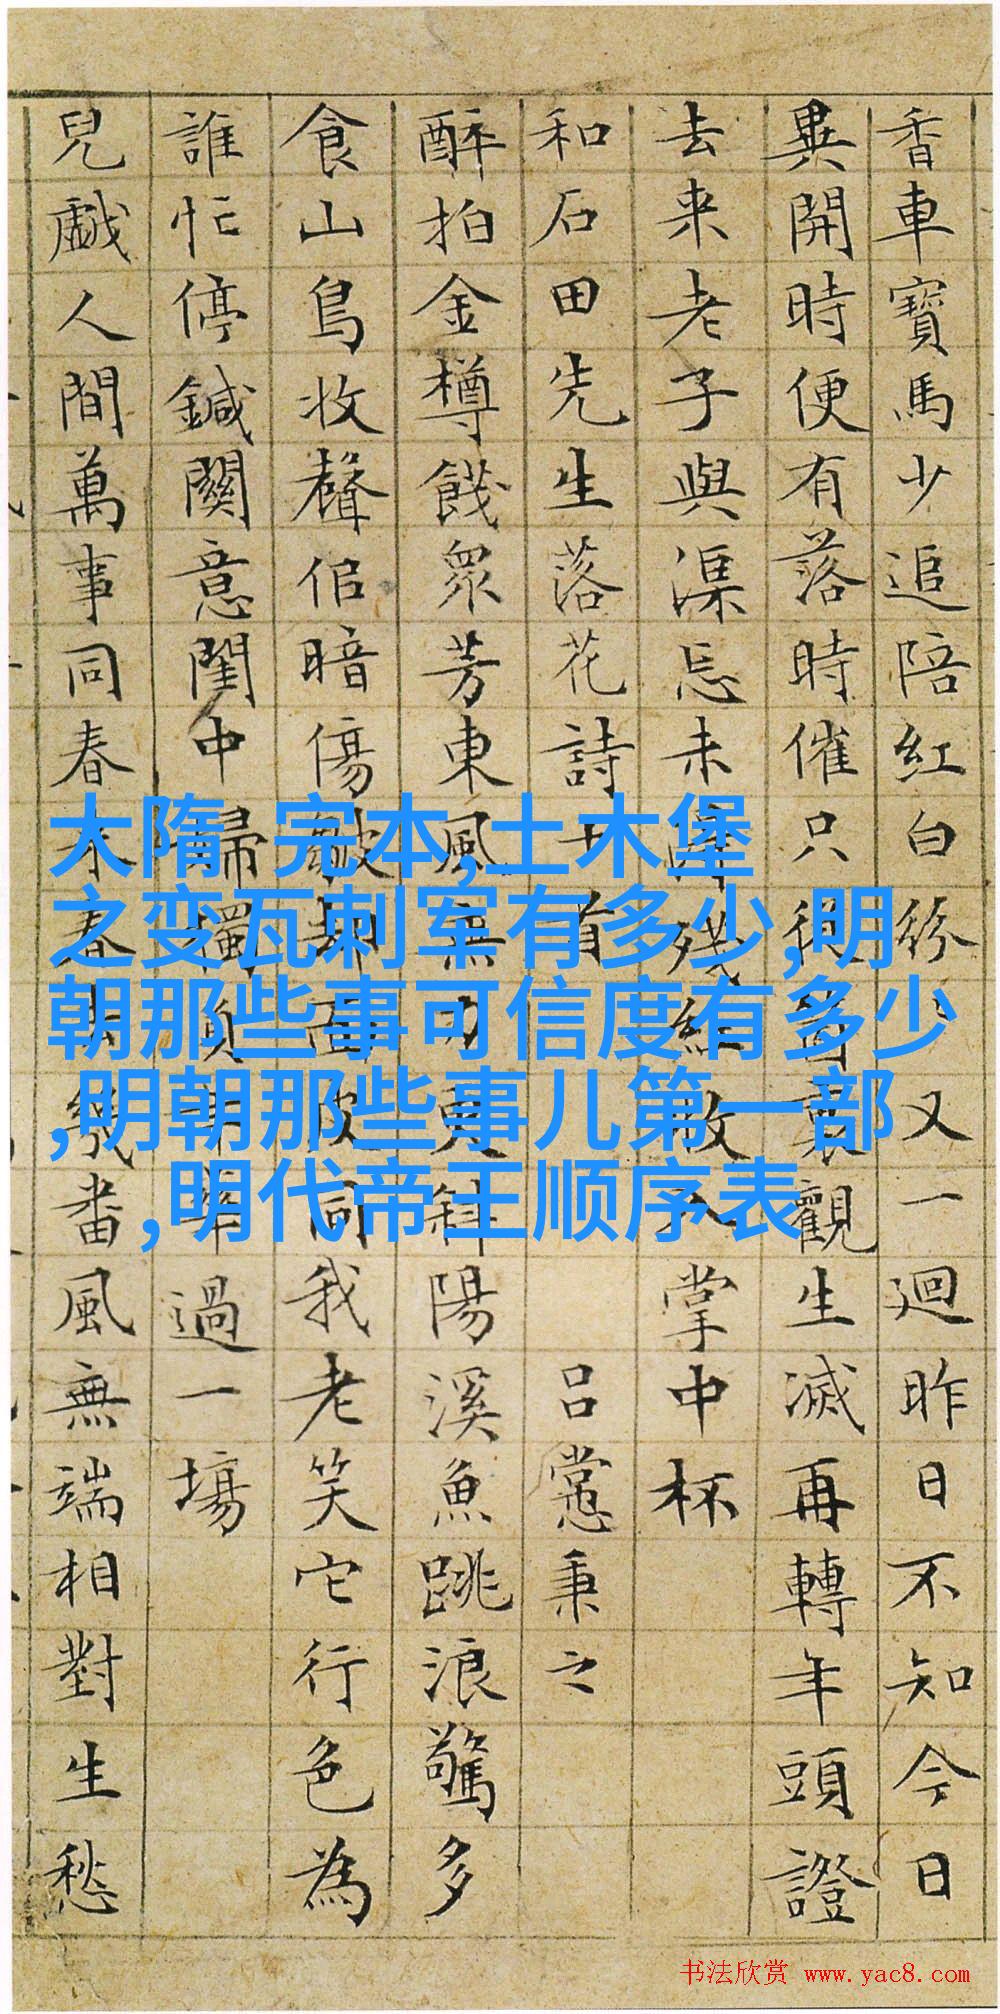 香車寶馬少追陪紅白紛々又一迴昨日不知今日
異開時便有落時催只從箇裏觀生滅再轉年頭證
去来老子與渠忘未殘紅收入掌中杯
和石田先生落花詩十首 吕㦂秉之
醉拍金樽餞衆芳東風無力更斜陽溪魚跳浪驚多
食山鳥收聲佀暗傷皺却面皮同我老笑它行色為
誰忙停鍼闗意閨中婦獨負年華過一場
兒戲人間萬事同春来春去幾番風無端相對生愁
大隋 完本,土木堡
之变瓦刺军有多少,明
朝那些事可信度有多少
,明朝那些事儿第一部
,明代帝王顺序表
书法欣赏 www.yac8.com